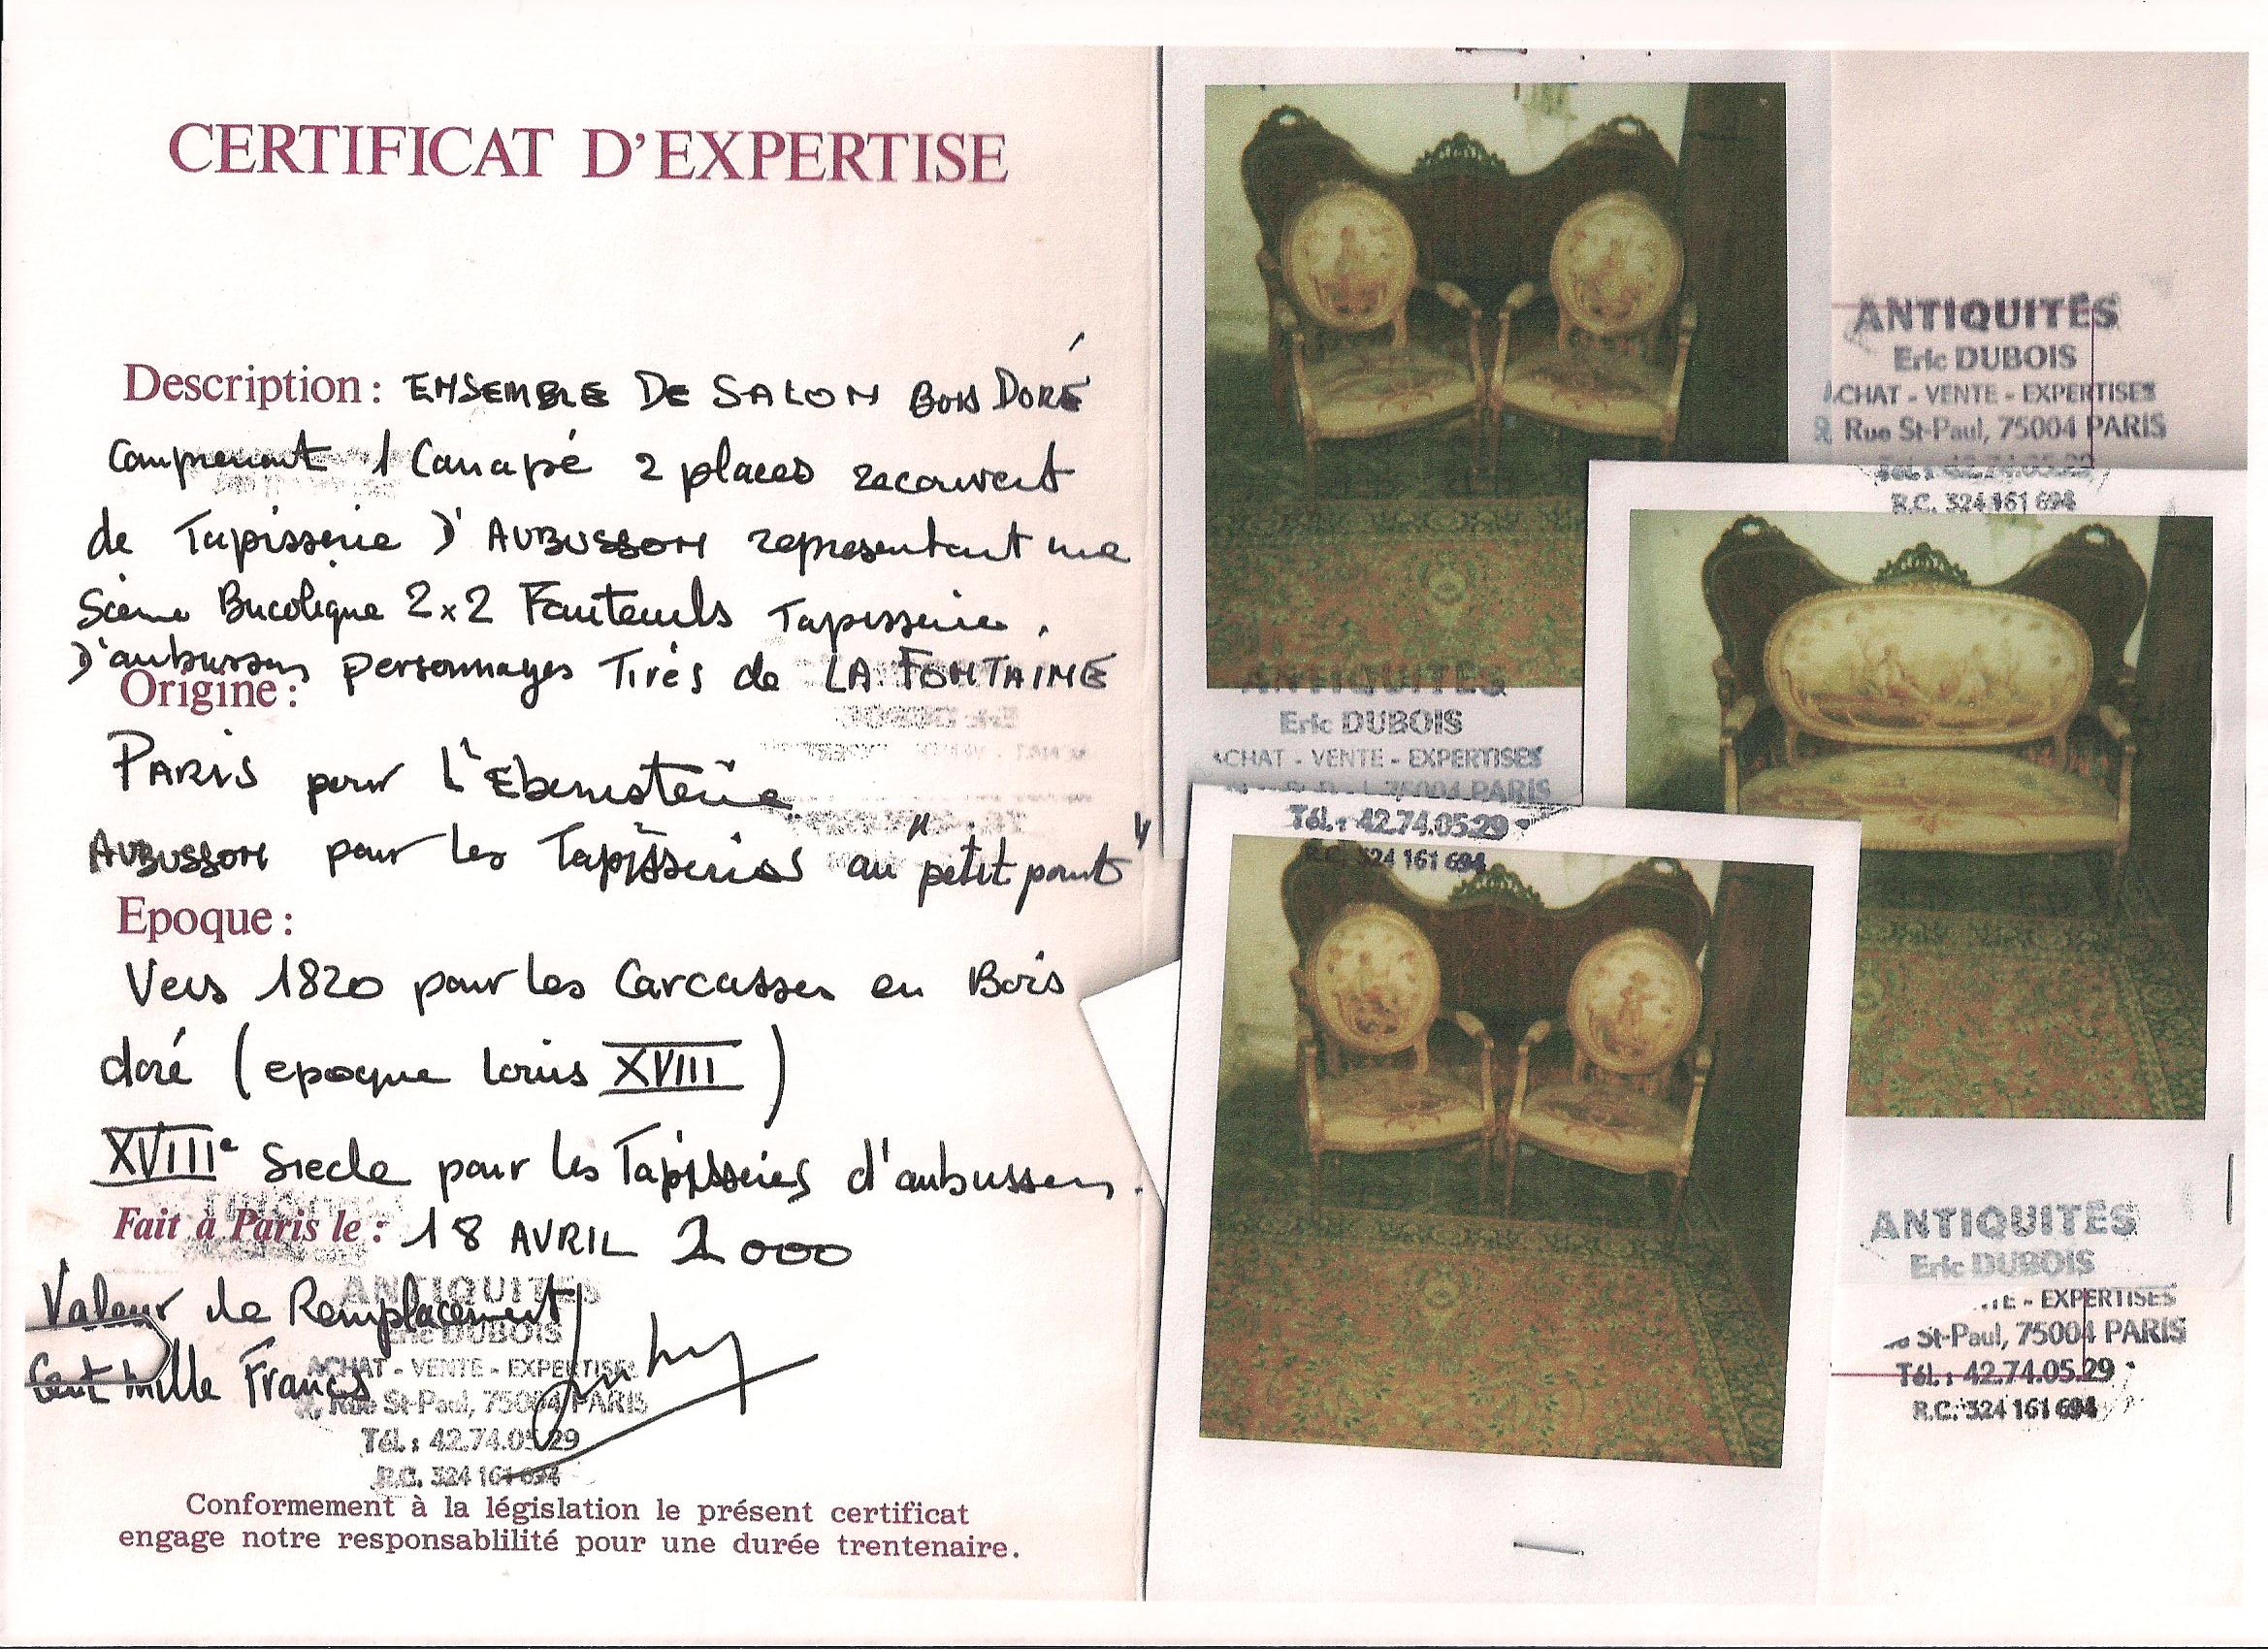 CERTIFICAT D'EXPERTISE
Description : ENSEMBLE DE SALON BOIS DORÉ
Comprenant 1 Canapé 2 places recouvert
de Tapisserie D'AUBUSSON representant une
Scène Bucolique 2x2 Fauteuils Tapisserie.
D'aubusson personnages Tirés de LA FONTAINE
Origine :
PARIS pour l'Ebenisterie
AUBUSSON pour les Tapisseries au "petit point"
Epoque :
Vers 1820 pour les Carcasses en Bois
doré (epoque Louis XVIII)
XVIIIe Siecle pour les Tapisseries d'aubusson.
Fait à Paris le : 18 AVRIL 2000
Valeur de Remplacement
Cent mille Francs
ANTIQUITES
Eric DUBOIS
ACHAT - VENTE - EXPERTISES
Rue St-Paul, 75004 PARIS
Tél. : 42.74.05.29
R.C. 324 161 694
Conformement à la législation le présent certificat
engage notre responsablilité pour une durée trentenaire.
ANTIQUITÉS
Eric DUBOIS
ACHAT - VENTE - EXPERTISES
Rue St-Paul, 75004 PARIS
Tél. : 42.74.05.29
R.C. 324 161 694
ANTIQUITES
Eric DUBOIS
ACHAT - VENTE - EXPERTISES
75004 PARIS
Tél. : 42.74.05.29
R.C. 324 161 694
ANTIQUITÉS
Eric DUBOIS
TE - EXPERTISES
St-Paul, 75004 PARIS
Tél. : 42.74.05.29
R.C. 324 161 694